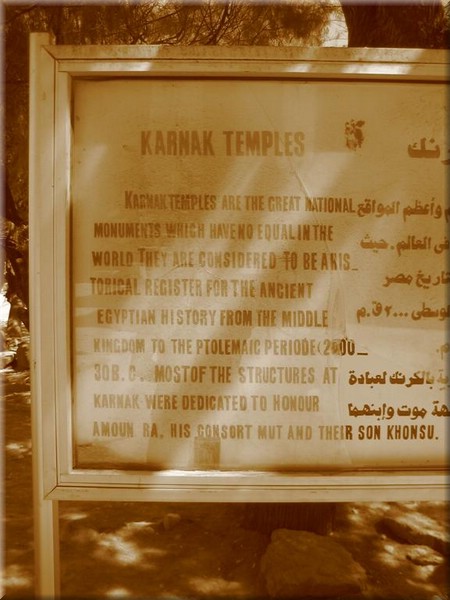 KARNAK TEMPLES
KARNAK TEMPLES ARE THE GREAT NATIONAL
MONUMENTS WHICH HAVE NO EQUAL IN THE
WORLD THEY ARE CONSIDERED TO BE A HIS_
TORICAL REGISTER FOR THE ANCIENT
EGYPTIAN HISTORY FROM THE MIDDLE
KINGDOM TO THE PTOLEMAIC PERIODE (2000_
30 B.C. MOST OF THE STRUCTURES AT
KARNAK WERE DEDICATED TO HONOUR
AMOUN RA, HIS CONSORT MUT AND THEIR SON KHONSU.
رنك
وأعظم المواقع
فى العالم . حيث
تاريخ مصر
وسطى ٢٠٠٠ ق.م
م.
ية بالكرنك لعبادة
هة موت وإبنهما